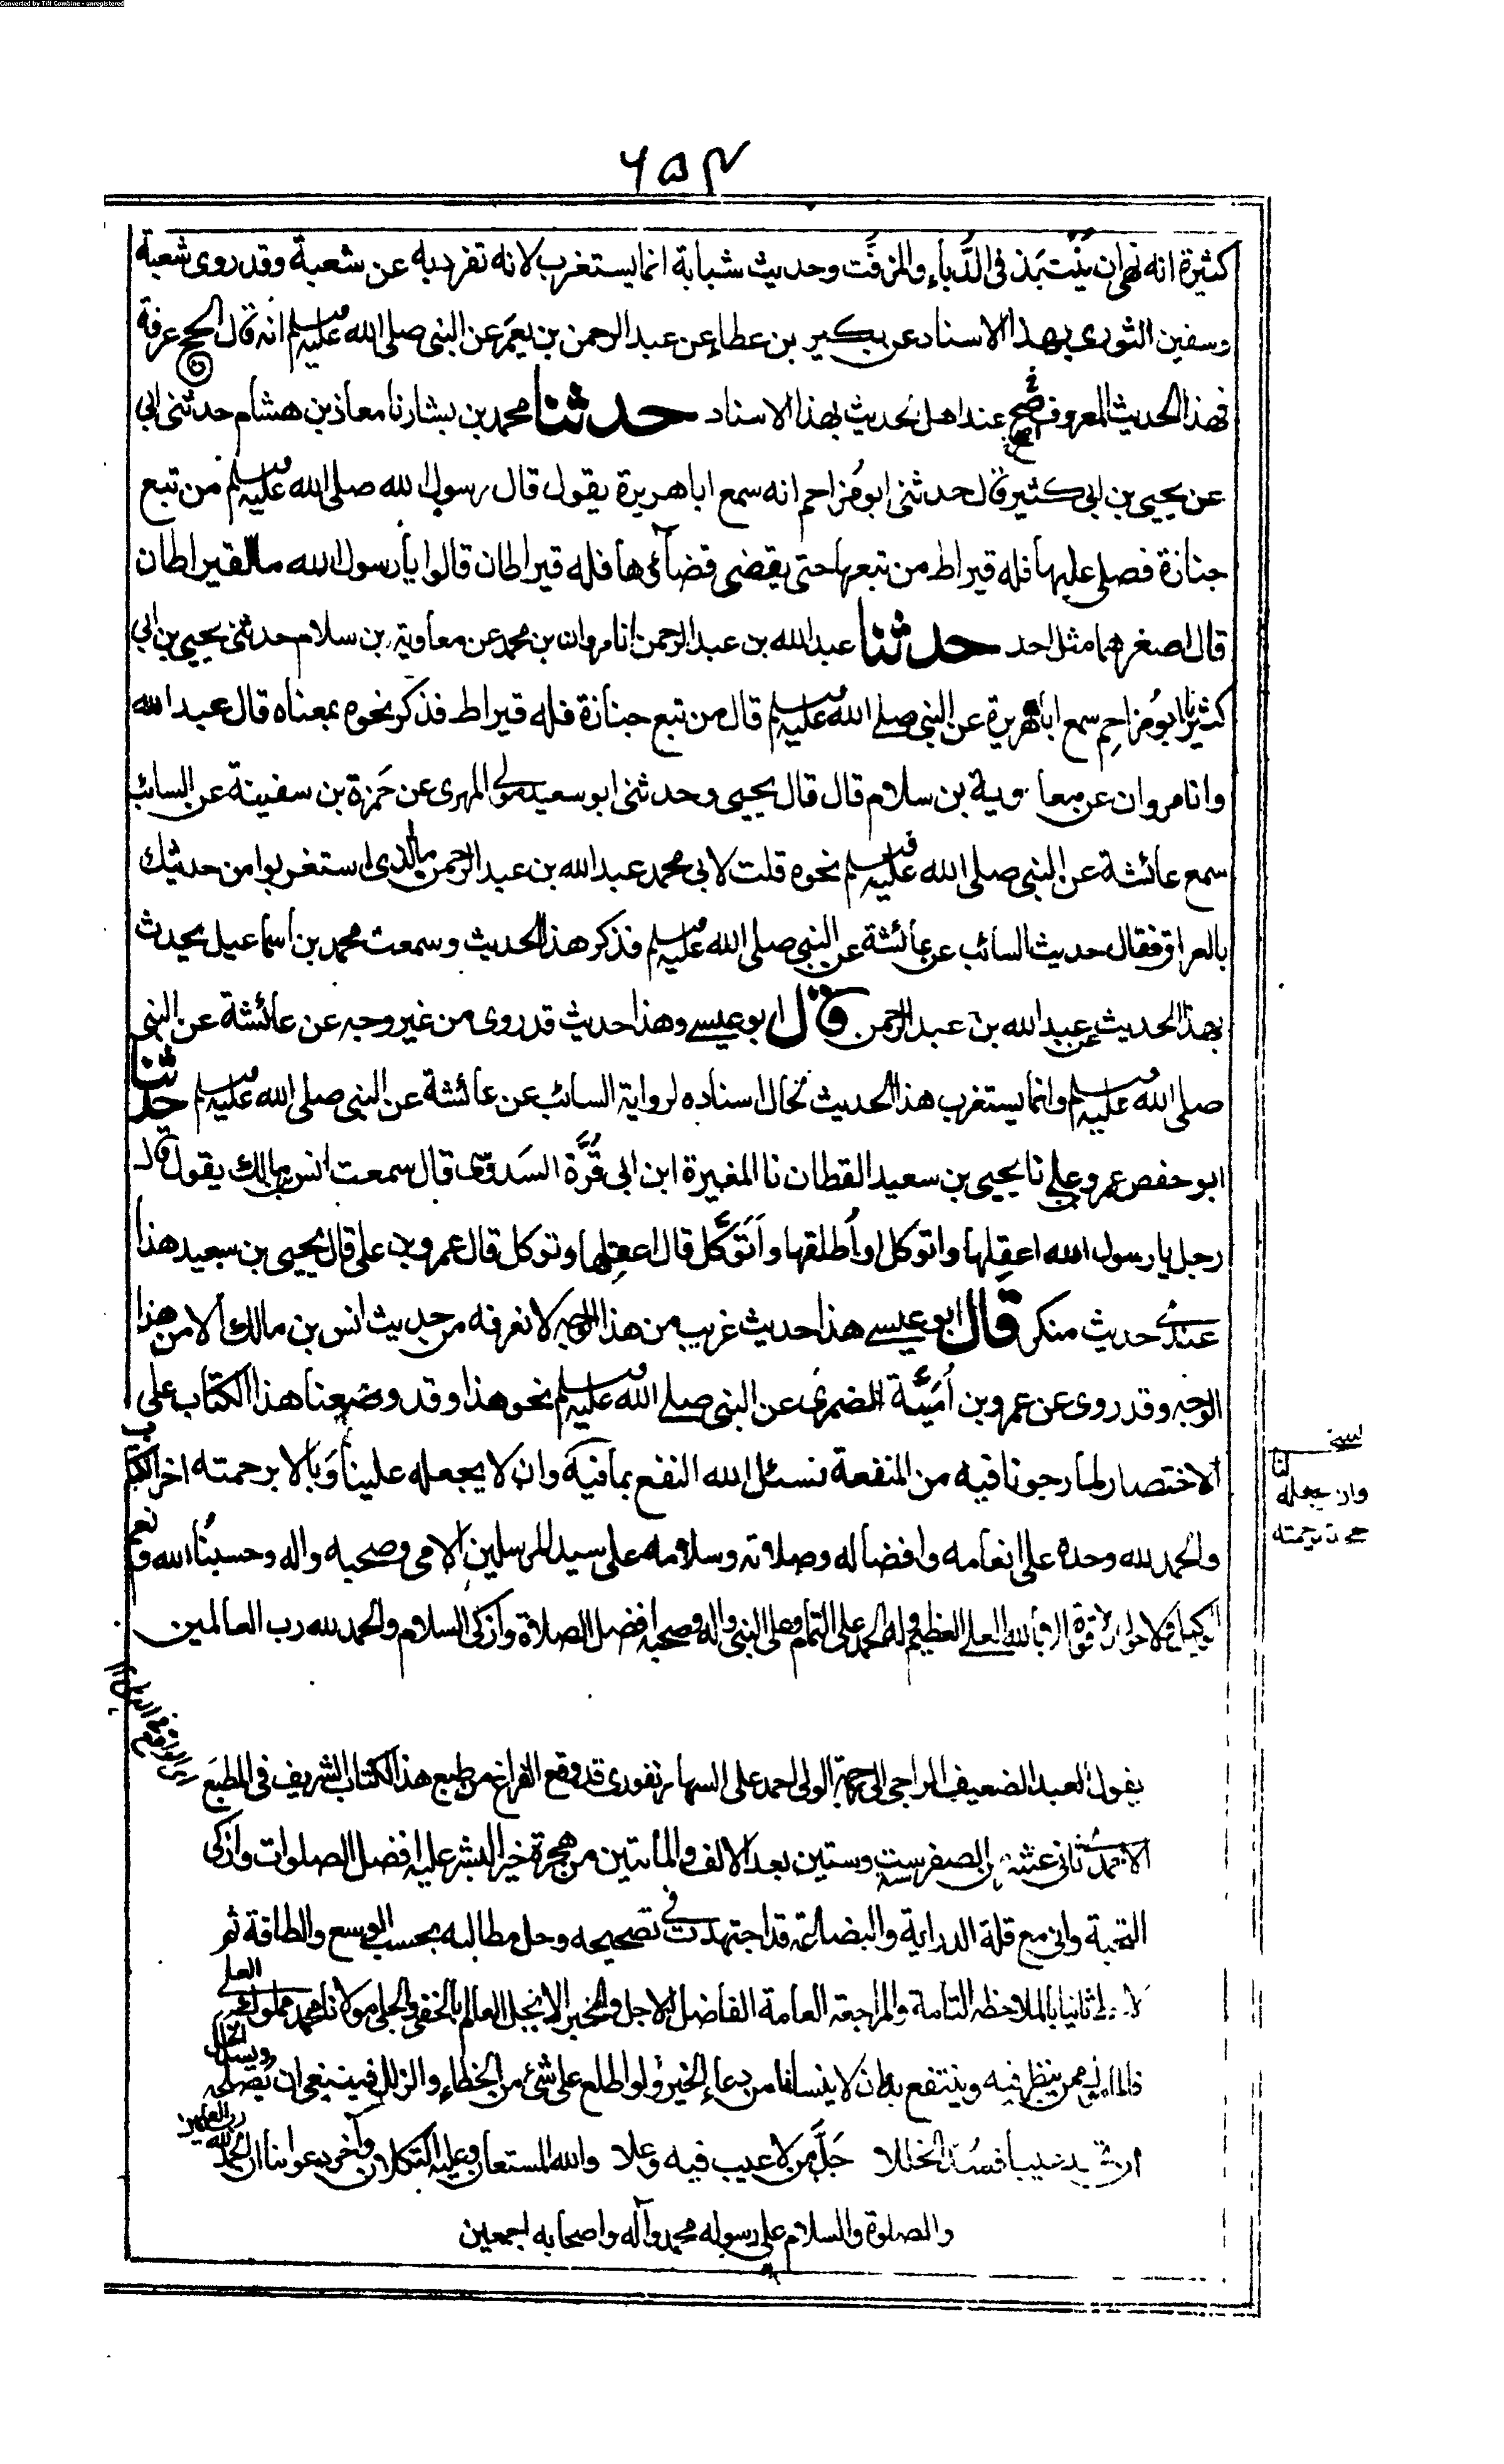 Converted by Tiff Combine - unregistered
٦٥٤
كثيرة انه نهى ان يُنْتَبَذ فى الدُّباء والمزفَّت وحديث شبابة انما يستغرب لانه تفرد به عن شعبة وقد روى شعبة
وسفين الثورى بهذا الاسناد عن بكير بن عطاء عن عبد الرحمن بن يعمَر عن النبى صلى الله عليه وسلم انه قال الحج عرفة
فهذا الحديث المعروف صح عند اهل الحديث بهذا الاسناد حدثنا محمد بن بشار نا معاذ بن هشام حدثنى ابى
عن يحيى بن ابى كثير قال حدثنى ابو مُزاحم انه سمع ابا هريرة يقول قال رسول الله صلى الله عليه وسلم من تبع
جنازة فصلى عليها فله قيراط من تبعها حتى يقضى قضاؤها فله قيراطان قالوا يا رسول الله ما القيراطان
قال اصغرهما مثل احد حدثنا عبد الله بن عبد الرحمن انا مروان بن محمد عن معاوية بن سلام حدثنى يحيى بن ابى
كثير نا ابو مُزاحِم سمع ابا هريرة عن النبى صلى الله عليه وسلم قال من تبع جنازة فله قيراط فذكر نحوه بمعناه قال عبد الله
وانا مروان عن معاوية بن سلام قال قال يحيى وحدثنى ابو سعيد مولى المهرى عن حَمزة بن سفينة عن السائب
سمع عائشة عن النبى صلى الله عليه وسلم نحوه قلت لابى محمد عبد الله بن عبد الرحمن ما الذى استغربوا من حديثك
بالعراق فقال حديث السائب عن عائشة عن النبى صلى الله عليه وسلم فذكر هذا الحديث وسمعت محمد بن اسماعيل يحدث
بهذا الحديث عن عبد الله بن عبد الرحمن قال ابو عيسى وهذا حديث قد روى من غير وجه عن عائشة عن النبى
صلى الله عليه وسلم وانما يستغرب هذا الحديث لحال اسناده لرواية السائب عن عائشة عن النبى صلى الله عليه وسلم حدثنا
ابو حفص عمرو بن على نا يحيى بن سعيد القطان نا المغيرة ابن ابى قُرَّة السَدوسى قال سمعت انس بن مالك يقول قال
رجل يا رسول الله اعقِلها واتوكل او اُطلقها واَتَوَكَّل قال اعقِلها وتوكل قال عمرو بن على قال يحيى بن سعيد هذا
عندى حديث منكر قال ابو عيسى هذا حديث غريب من هذا الوجه لا نعرفه من حديث انس بن مالك الا من هذا
الوجه وقد روى عن عمرو بن اُمَيَّة الضمرى عن النبى صلى الله عليه وسلم نحو هذا وقد وضعنا هذا الكتاب على
الاختصار لما رجونا فيه من المنفعة نسئل الله النفع بما فيه وان لا يجعله علينا وَبالا برحمته اخر الكتاب
والحمد لله وحده على انعامه وافضاله وصلاته وسلامه على سيد المرسلين الامى وصحبه واله وحسبُنا الله ونعم
الوكيل ولا حول ولا قوة الا بالله العلى العظيم وله الحمد على التمام وعلى النبى واله وصحبه افضل الصلاة وازكى السلام والحمد لله رب العالمين
لنا
وان يجعله
برحمته
يقول العبد الضعيف الراجى الى رحمة الولى احمد على السهارنفورى قد وقع الفراغ من طبع هذا الكتاب الشريف فى المطبع
الاحمدى ثانى عشر من الصفر سنة ست وستين بعد الالف والمائتين من هجرة خير البشر عليه افضل الصلوات وازكى
التحية وانى مع قلة الدراية والبضاعة قد اجتهدت فى تصحيحه وحل مطالبه بحسب الوسع والطاقة ثم
ثانيا بالملاحظة التامة والمراجعة العامة الفاضل الاجل والحبر الابجل العالم بالخفى والجلى مولانا محمد مملوك العلى
ممن ينظر فيه وينتفع به ان لا ينسانا من دعاء الخير ولو اطلع على شئ من الخطاء والزلل فينبغى ان يصلحه ويسد الخلل
عيبا فسُدّ الخللا جَلَّ من لا عيب فيه وعلا والله المستعان وعليه التكلان وآخر دعوانا ان الحمد لله رب العلمين
والصلوة والسلام على رسوله محمد وآله واصحابه اجمعين